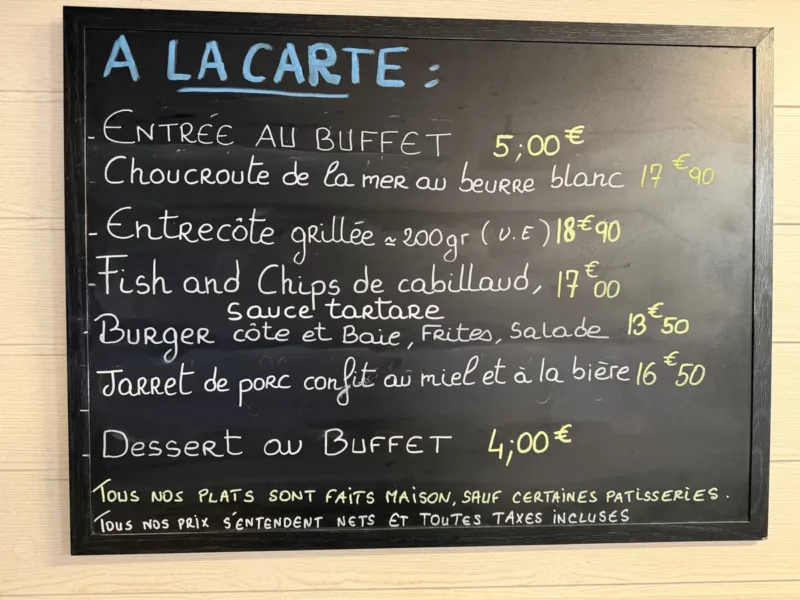 A LA CARTE :
- ENTRÉE AU BUFFET 5,00€
CHOUCROUTE de la mer au beurre blanc 17€90
- Entrecôte grillée ≃ 200gr (U.E) 18€90
- Fish and Chips de cabillaud, 17€00
sauce tartare
- Burger côte et Baie, Frites, Salade 13€50
Jarret de porc confit au miel et à la bière 16€50
- Dessert au BUFFET 4,00€
TOUS NOS PLATS SONT FAITS MAISON, SAUF CERTAINES PATISSERIES.
TOUS NOS PRIX S'ENTENDENT NETS ET TOUTES TAXES INCLUSES